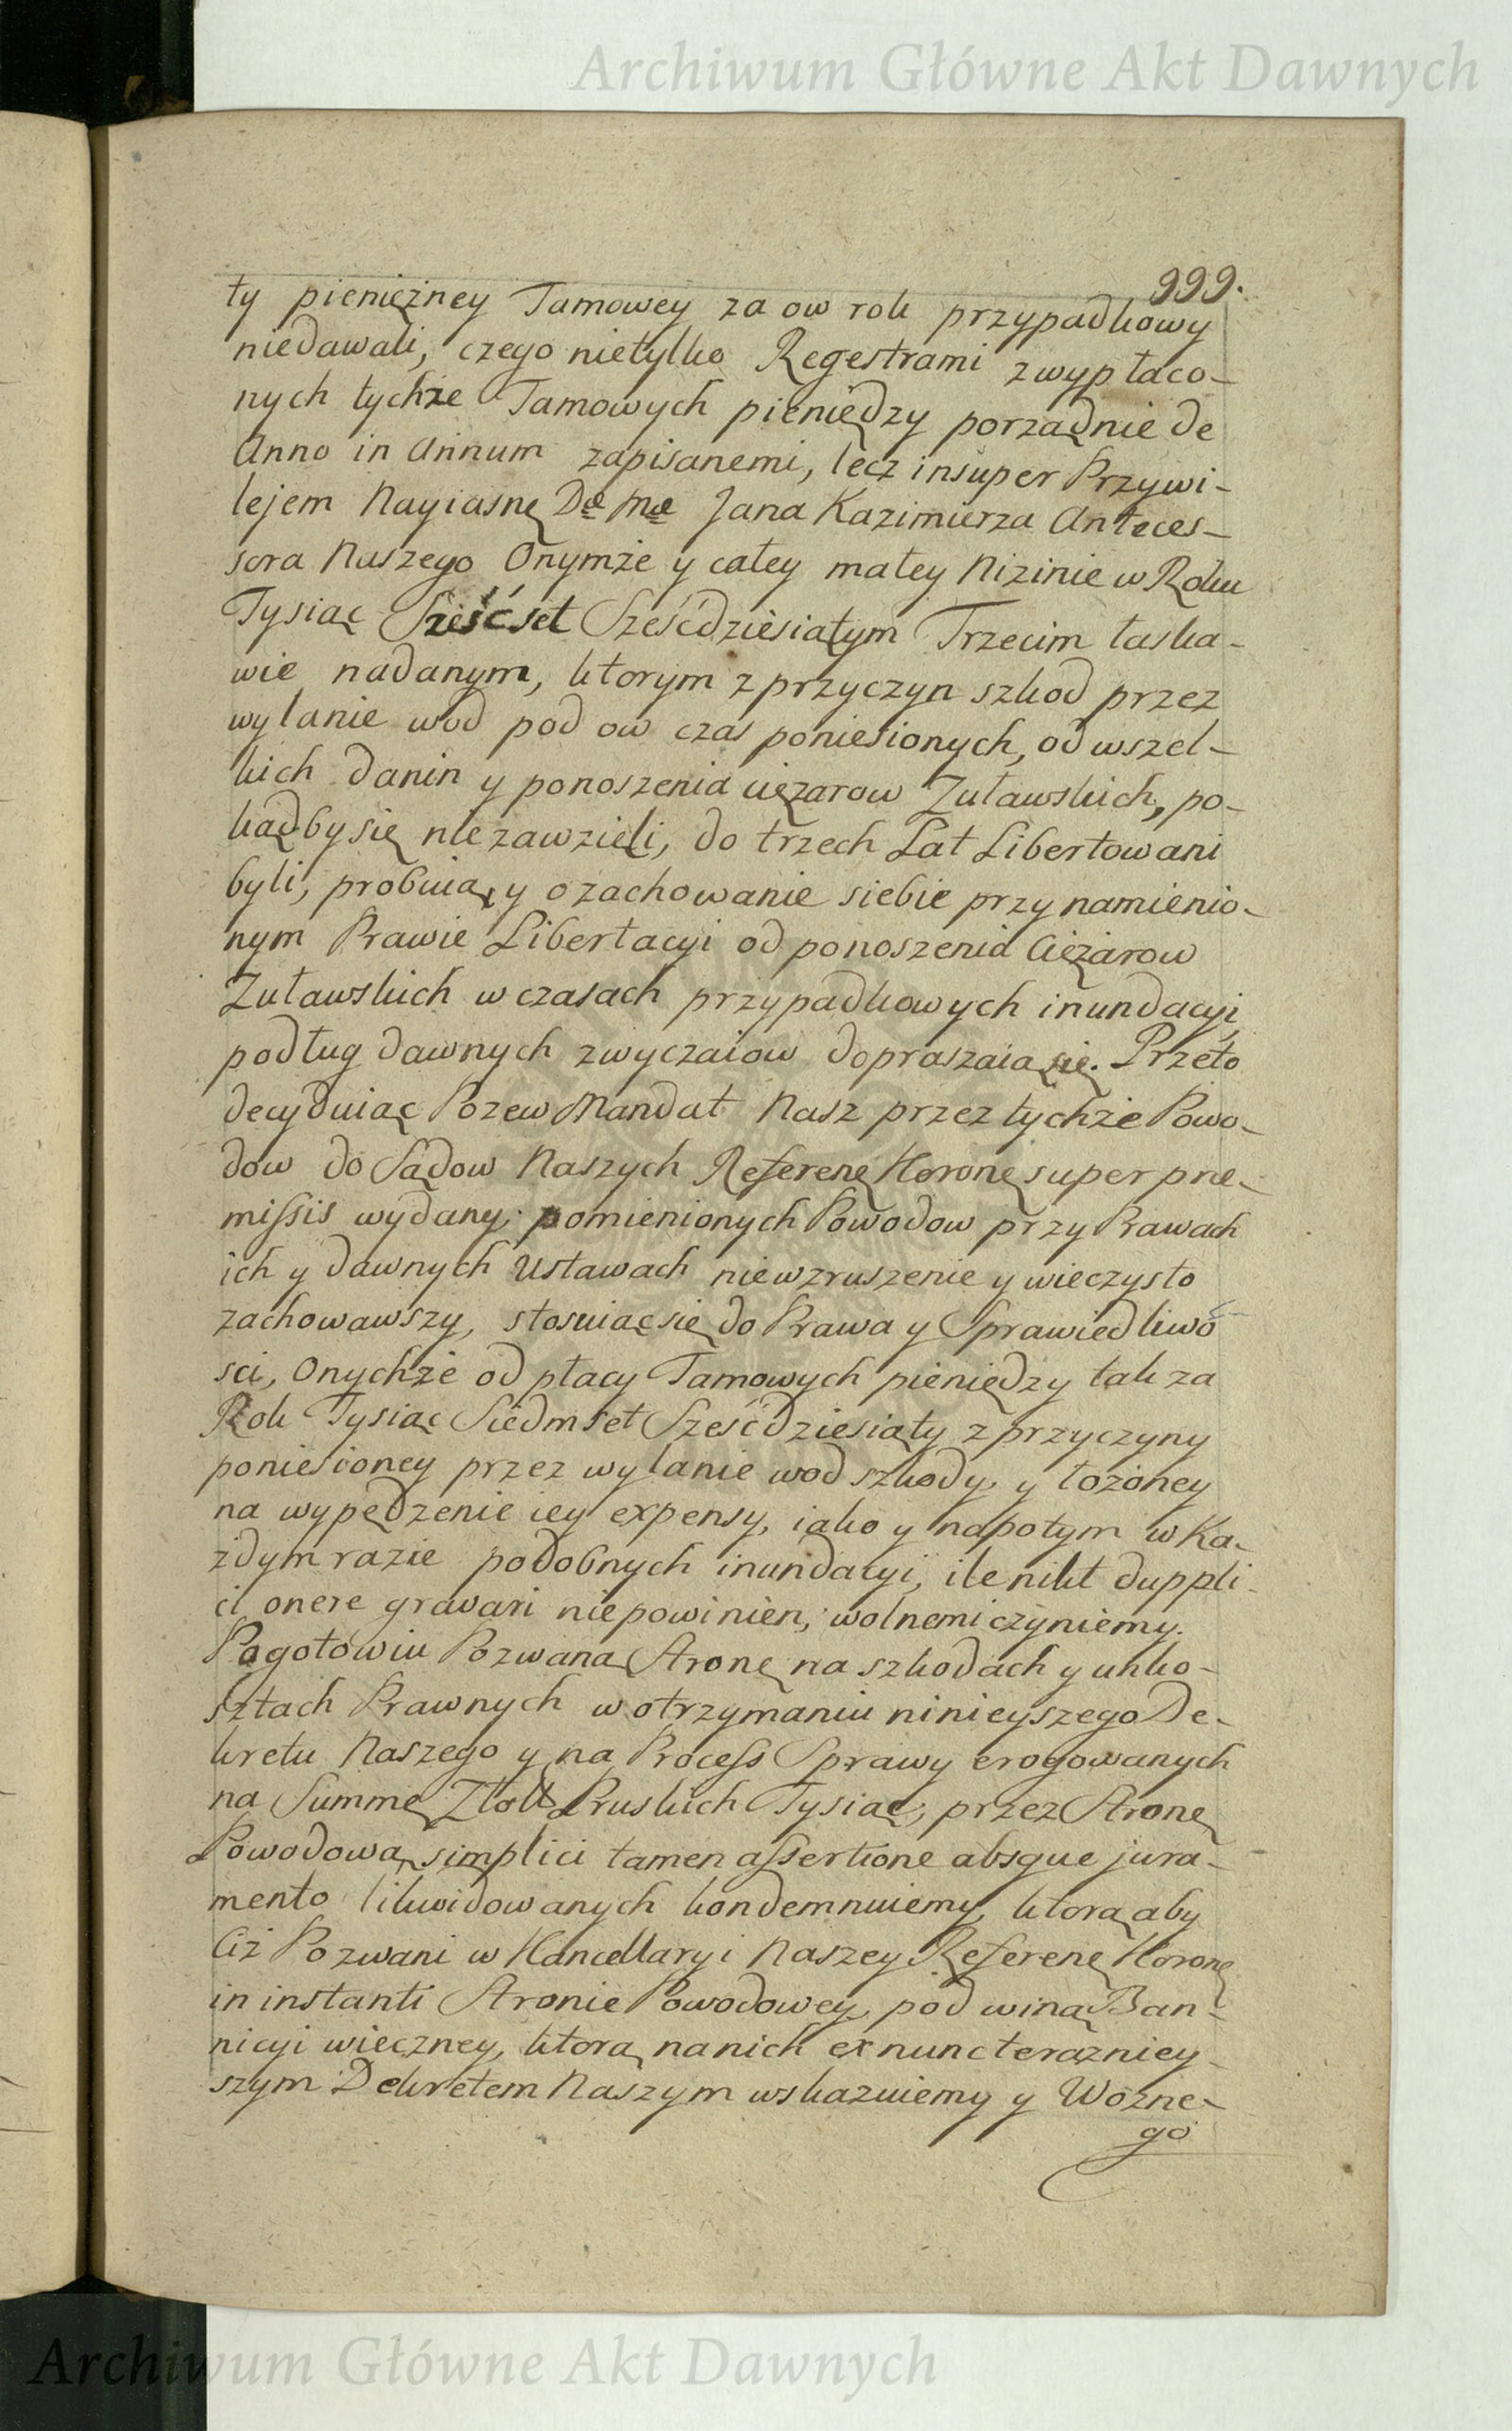 Archiwum Główne Akt Dawnych
999.
ty pieniężney Tamowey za ow rok przypadkowy
niedawali, czego nietylko Regestrami z wypłaco-
nych tychże Tamowych pieniędzy porządnie de
Anno in Annum zapisanemi, lecz insuper Przywi-
lejem Nayiasnę Jana Kazimierza Anteces-
sora Naszego Onymże y całey małey Nizinie w Roku
Tysiąc Sześćset Sześćdziesiątym Trzecim łaska-
wie nadanym, ktorym z przyczyn szkod przez
wylanie wod pod ow czas poniesionych, od wszel-
kich danin y ponoszenia ciężarow Żuławskich, po-
kądby się nie zawzieli, do trzech Lat Libertowani
byli, probuią, y o zachowanie siebie przy namienio-
nym Prawie Libertacyi od ponoszenia Ciężarow
Żuławskich w czasach przypadkowych inundacyi,
podług dawnych zwyczaiow dopraszaią się. Przeto
decyduiąc Pozew Mandat Nasz przez tychże Powo-
dow do Sądow Naszych Referenę Koronę super præ-
missis wydany, pomienionych Powodow przy Prawach
ich y dawnych Ustawach niewzruszenie y wieczysto
zachowawszy, stosuiąc się do Prawa y Sprawiedliwo
sci, Onychże od płacy Tamowych pieniędzy tak za
Rok Tysiąc Siedmset Sześćdziesiąty z przyczyny
poniesioney przez wylanie wod szkody, y łożoney
na wypędzenie iey expensy, iako y napotym w Ka-
żdym razie podobnych inundacyi, ile nikt duppli-
ci onere gravari niepowinien, wolnemi czyniemy.
Pogotowiu Pozwaną Stronę na szkodach y unko-
sztach Prawnych w otrzymaniu ninieyszego De-
kretu Naszego y na Process Sprawy erogowanych
na Summę Złott Pruskich Tysiąc, przez Stronę
Powodową simplici tamen assertione absque jura-
mento likwidowanych kondemnuiemy, ktorą aby
Ciż Pozwani w Kancellaryi Naszey Referenę Koronę
in instanti Stronie Powodowey, pod winą Ban-
nicyi wieczney, ktorą na nich ex nunc terazniey-
szym Dekretem Naszym wskazuiemy y Wozne-
go
Archiwum Główne Akt Dawnych